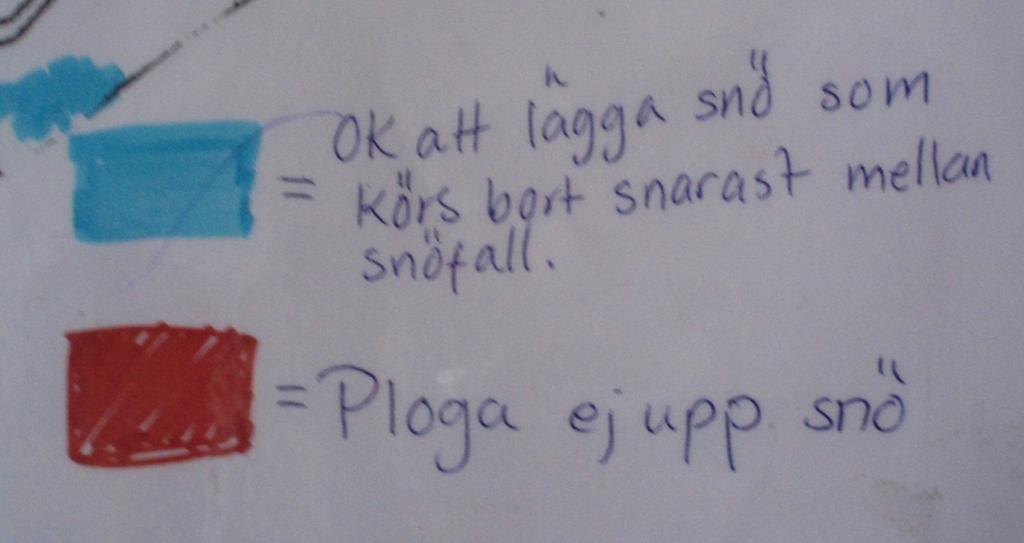 = OK att lägga snö som
körs bort snarast mellan
snöfall.
= Ploga ej upp snö